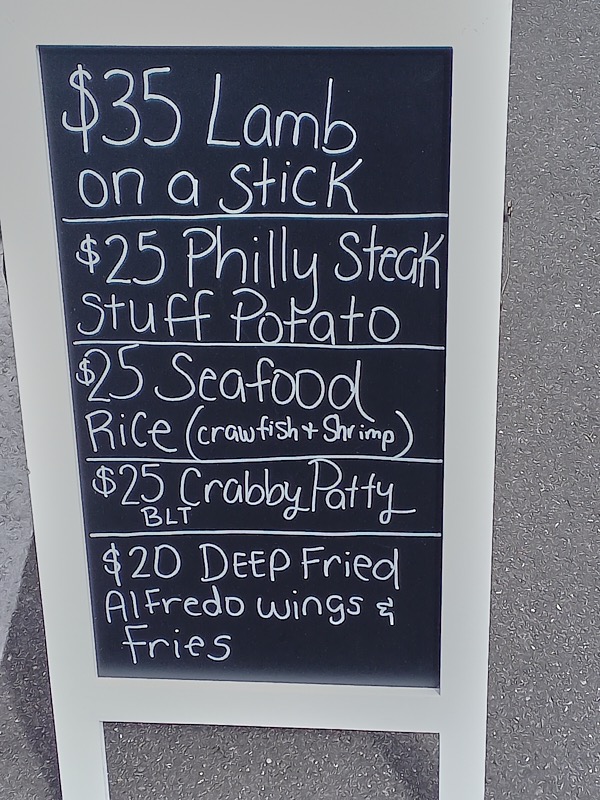 $35 Lamb
on a Stick
$25 Philly Steak
Stuff Potato
$25 Seafood
Rice (crawfish + Shrimp)
$25 Crabby Patty
BLT
$20 DEEP Fried
Alfredo wings &
Fries